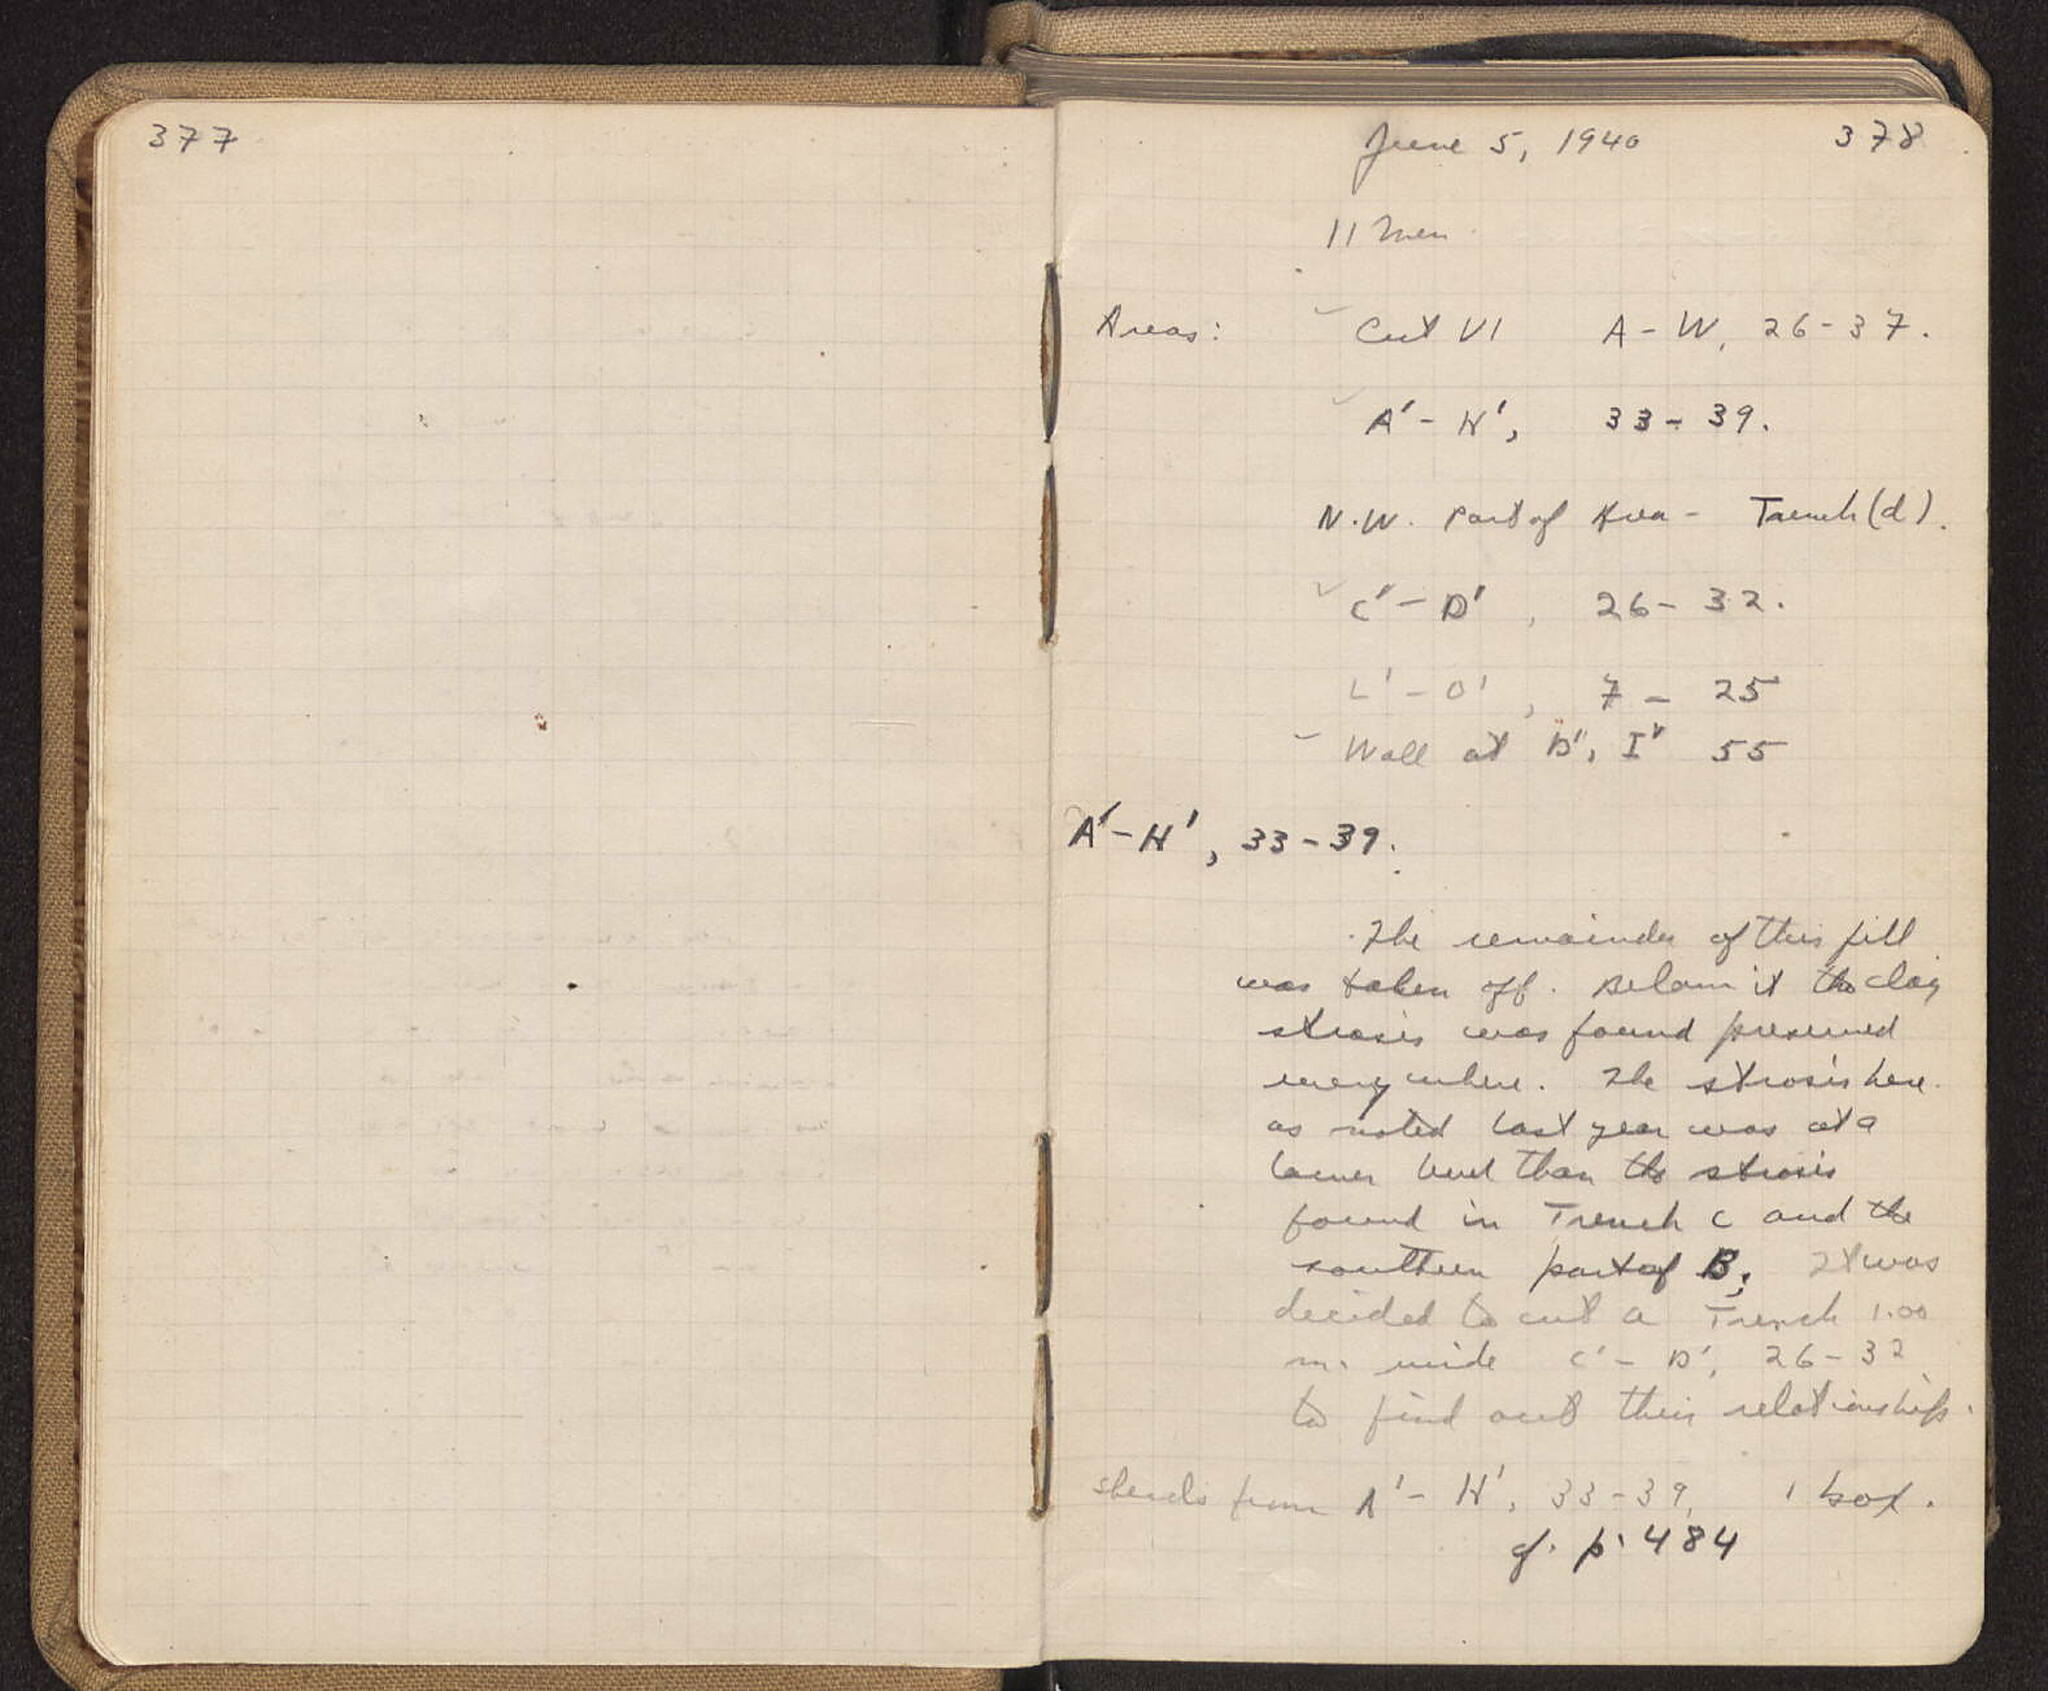 377
June 5, 1940 378
11 men
Areas: Cut VI A - W, 26-37.
A' - H', 33 - 39.
N.W. Part of Area - Trench (d).
C' - D', 26 - 32.
L' - O', 7 - 25
Wall at 55
A' - H', 33 - 39.
The remainder of this fill
was taken off. Below it the clay
strosis was found preserved
everywhere. The strosis here
as noted last year was at a
lower level than the strosis
found in Trench C and the
southern part of B. It was
decided to cut a Trench 1.00
m. wide C' - D', 26 - 32
to find out their relationships.
sherds from A' - H', 33 - 39, 1 box.
cf. p. 484